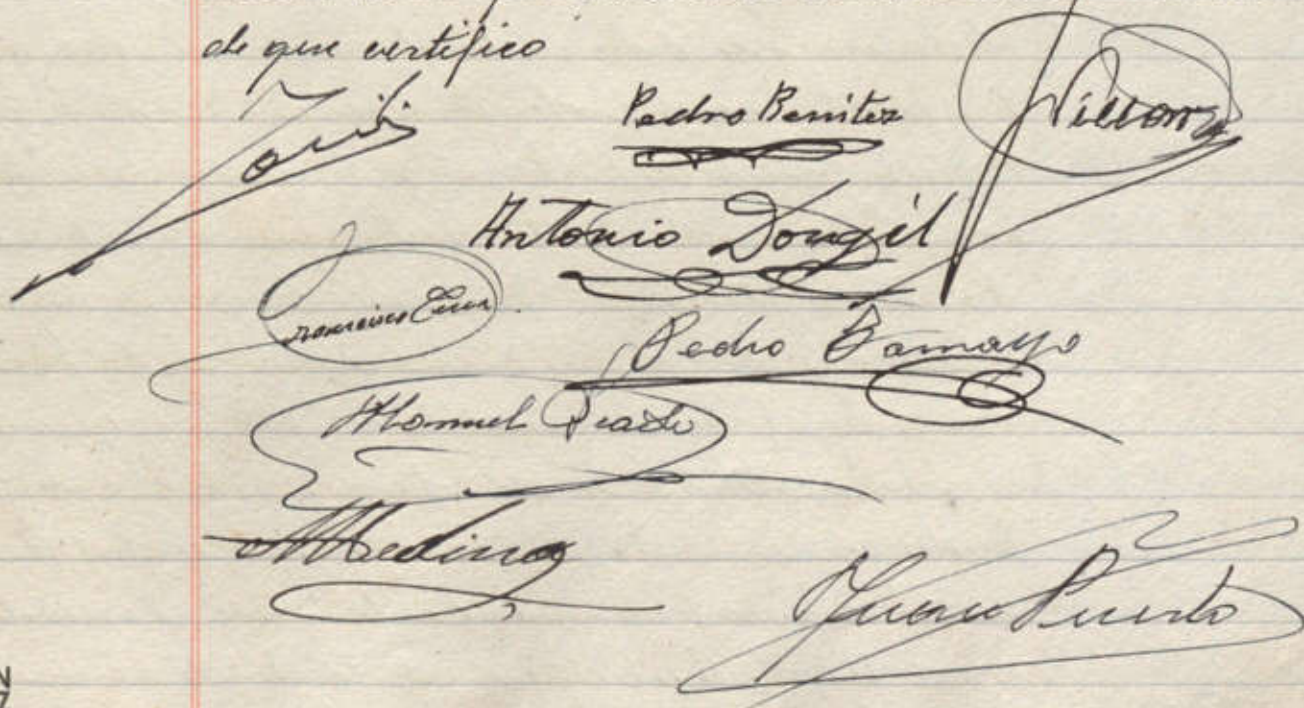 de que certifico
Pedro Benitez
Antonio Dongil
Francisco
Pedro Tamayo
Manuel Prado
Medina
Juan Puerto